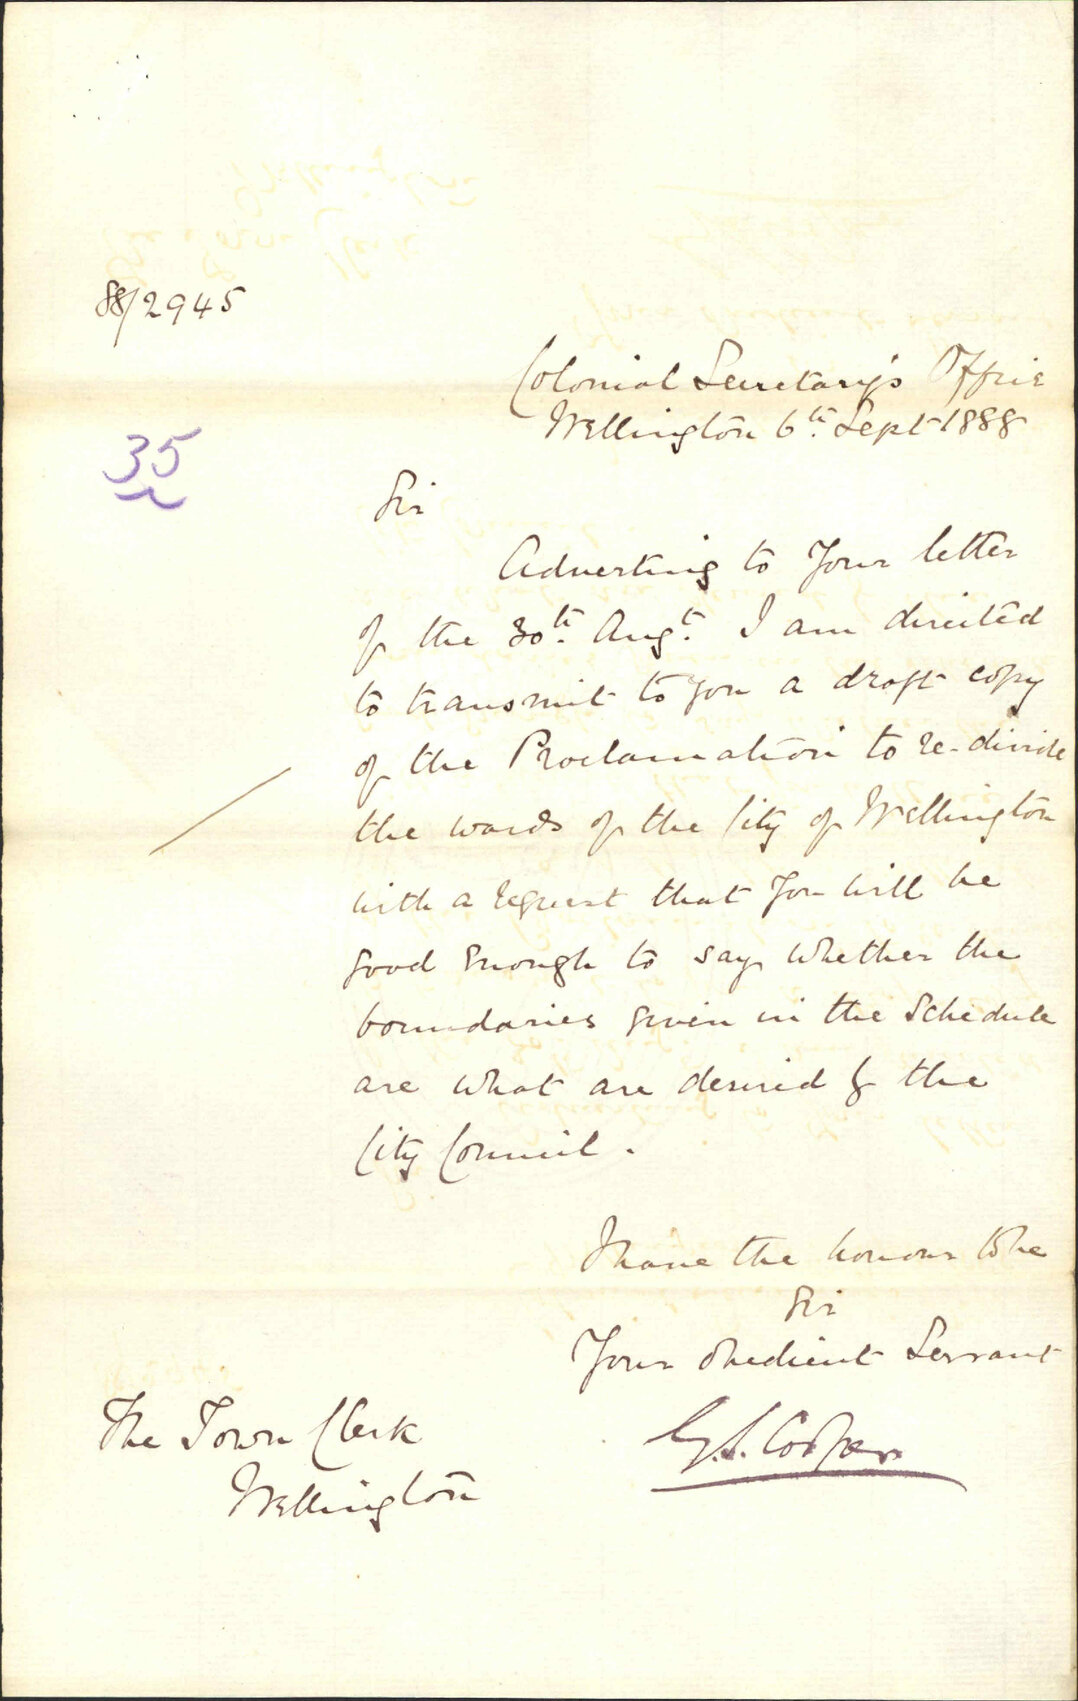 88/2945
Colonial Secretary's Office
Wellington 6th. Sept 1888
35
Sir
Adverting to your letter
of the 30th. Augt. I am directed
to transmit to you a draft copy
of the Proclamation to re-divide
the wards of the City of Wellington
with a request that you will be
good enough to say whether the
boundaries given in the Schedule
are what are desired by the
City Council.
I have the honour to be
Sir
Your obedient Servant
G.S. Cooper
The Town Clerk
Wellington